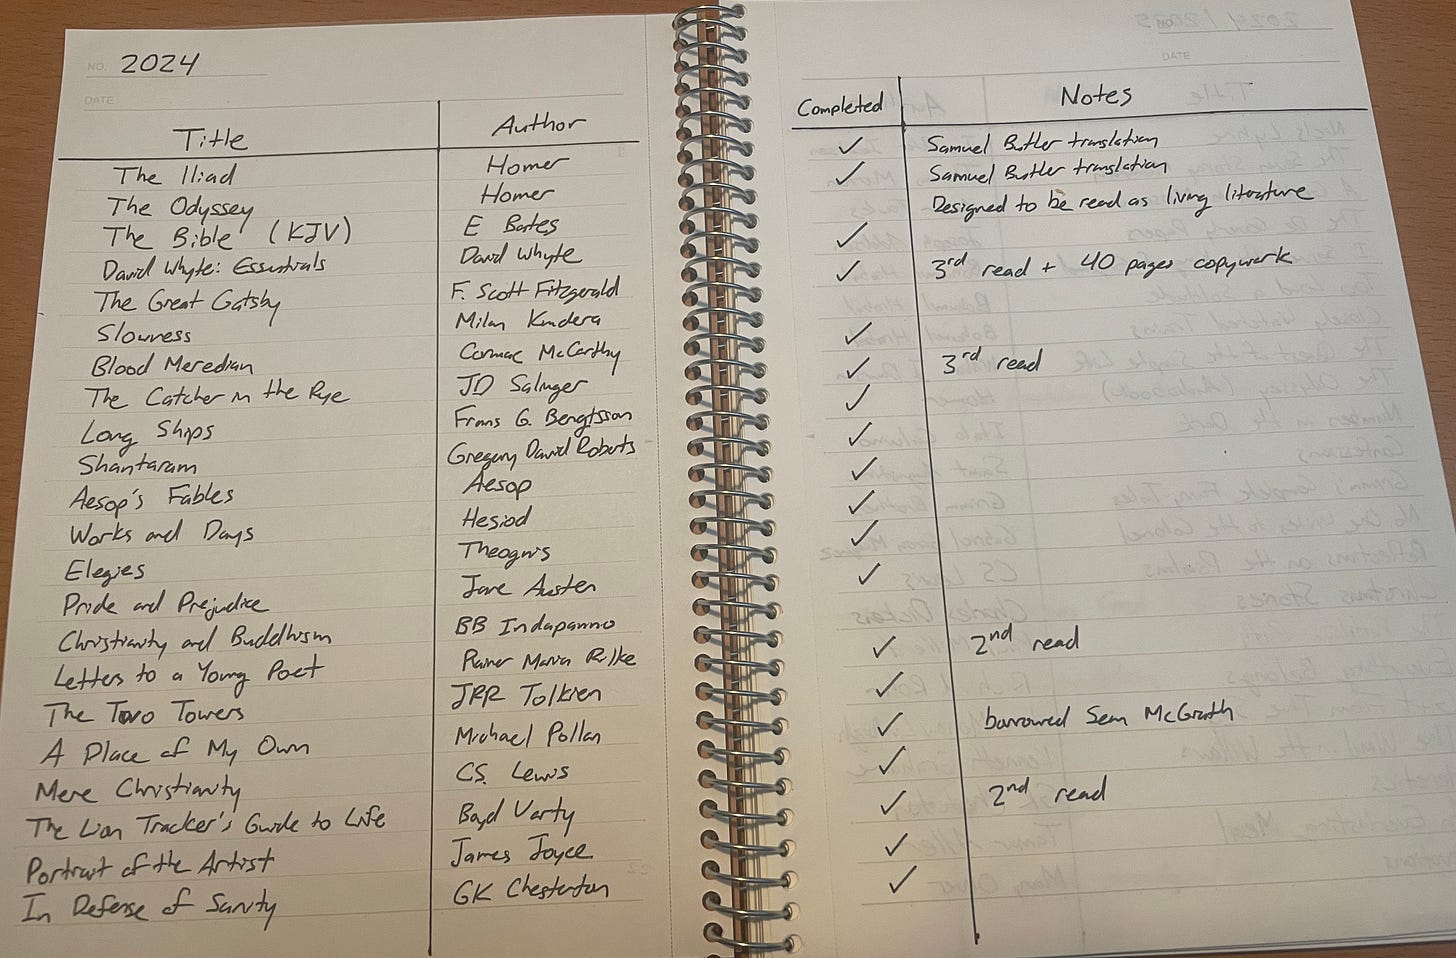 NO. 2024
DATE
Title Author
The Iliad Homer
The Odyssey Homer
The Bible (KJV) E Bates
David Whyte: Essentials David Whyte
The Great Gatsby F. Scott Fitzgerald
Slowness Milan Kundera
Blood Meredian Cormac McCarthy
The Catcher in the Rye JD Salinger
Long Ships Frans G. Bengtsson
Shantaram Gregory David Roberts
Aesop's Fables Aesop
Works and Days Hesiod
Elegies Theognis
Pride and Prejudice Jane Austen
Christianity and Buddhism BB Indapanno
Letters to a Young Poet Rainer Maria Rilke
The Two Towers JRR Tolkien
A Place of My Own Michael Pollan
Mere Christianity C.S. Lewis
The Lion Tracker's Guide to Life Boyd Varty
Portrait of the Artist James Joyce
In Defense of Sanity GK Chesterton
DATE
Completed Notes
✓ Samuel Butler translation
✓ Samuel Butler translation
Designed to be read as living literature
✓
✓ 3rd read + 40 pages copywork
✓
✓ 3rd read
✓
✓
✓
✓
✓
✓
✓ 2nd read
✓
✓ borrowed Sean McGrath
✓
✓ 2nd read
✓
✓